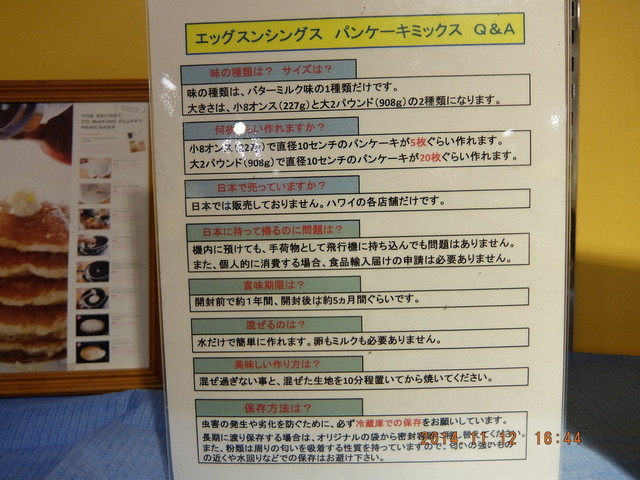 エッグスンシングス パンケーキミックス Q&A
味の種類は? サイズは?
味の種類は、バターミルク味の1種類だけです。
大きさは、小8オンス(227g)と大2パウンド(908g)の2種類になります。
何枚くらい作れますか?
小8オンス(227g)で直径10センチのパンケーキが5枚ぐらい作れます。
大2パウンド(908g)で直径10センチのパンケーキが20枚ぐらい作れます。
日本で売っていますか?
日本では販売しておりません。ハワイの各店舗だけです。
日本に持って帰るのに問題は?
機内に預けても、手荷物として飛行機に持ち込んでも問題はありません。
また、個人的に消費する場合、食品輸入届けの申請は必要ありません。
賞味期限は?
開封前で約1年間、開封後は約5ヵ月間ぐらいです。
混ぜるのは?
水だけで簡単に作れます。卵もミルクも必要ありません。
美味しい作り方は?
混ぜ過ぎない事と、混ぜた生地を10分程置いてから焼いてください。
保存方法は?
虫害の発生や劣化を防ぐために、必ず冷蔵庫での保存をお願いしています。
長期に渡り保存する場合は、オリジナルの袋から密封
替えてください。
また、粉類は周りの匂いを吸着する性質を持っていますので、匂いの強いもの
の近くや水回りなどでの保存はお避け下さい。
THE SECRET
TO MAKING FLUFFY
PANCAKES
2014.11.12 16:44